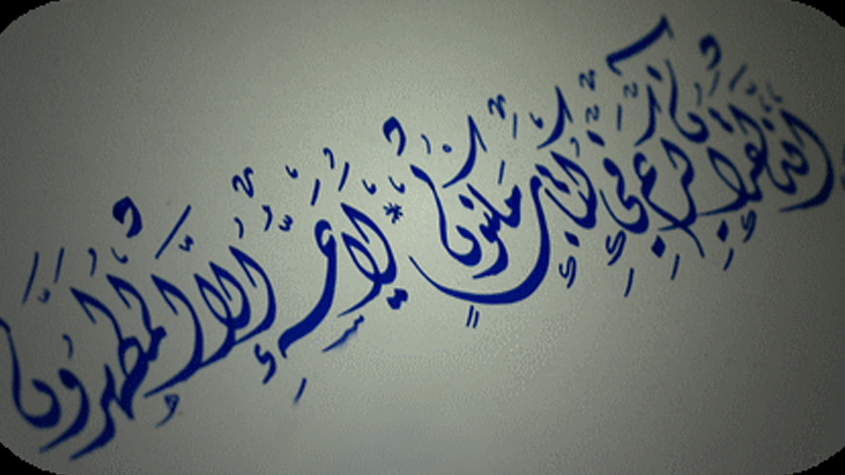 إنه لقرآن كريم في كتاب مكنون * لا يمسه إلا المطهرون